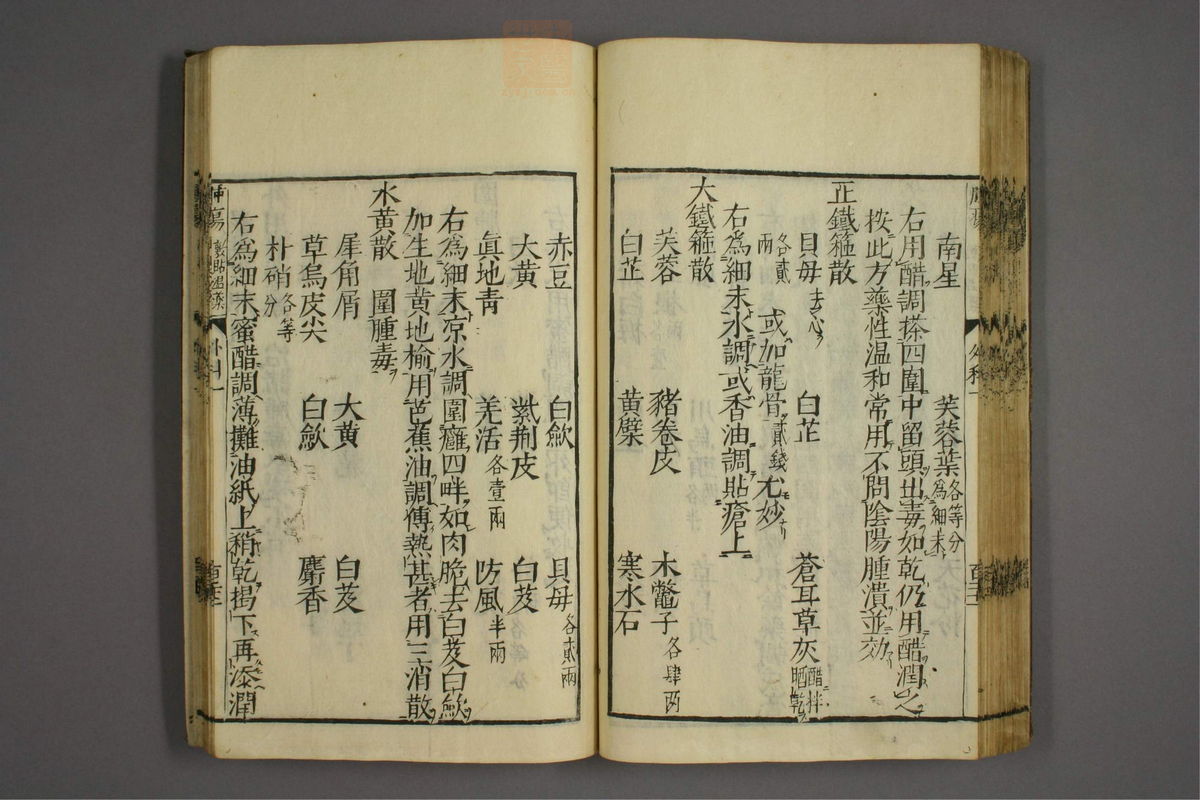 南星　芙蓉葉各等分爲細末
右用醋調搽四圍中留頭出毒如乾仍用醋潤之
按此方藥性温和常用不問陰陽腫潰並効
正鐵箍散
貝母去心　白芷　蒼耳草灰醋拌晒乾
各貳兩　或加龍骨貳錢尤妙
右爲細末水調或香油調貼瘡上
大鐵箍散
芙蓉　豬卷皮　木鼈子各肆兩
白芷　黄檗　寒水石
赤豆　白歛　貝母各貳兩
大黄　紫荆皮　白芨
眞地青　羌活各壹兩　防風半兩
右爲細末凉水調圍癰四畔如肉脆去白芨白歛
加生地黄地榆用芭蕉油調傅熱甚者用三消散
水黄散　圍腫毒
犀角屑　大黄　白芨
草烏皮尖　白歛　麝香
朴硝各等分
右爲細末蜜醋調薄攤油紙上稍乾揭下再添潤